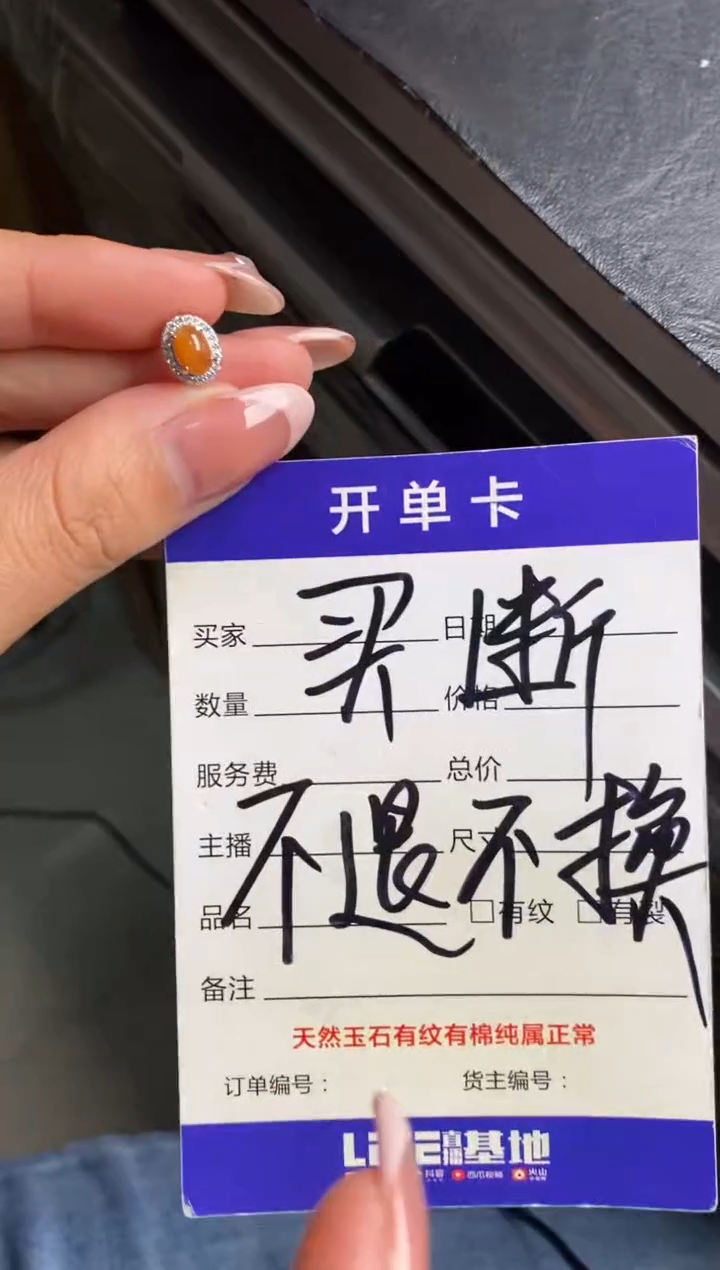 开单卡
买断
买家 日期
数量 价格
服务费 总价
不退不换
主播 尺寸
品名 □有纹 □有裂
备注
天然玉石有纹有棉纯属正常
订单编号： 货主编号：
直播基地
抖音 西瓜视频 火山